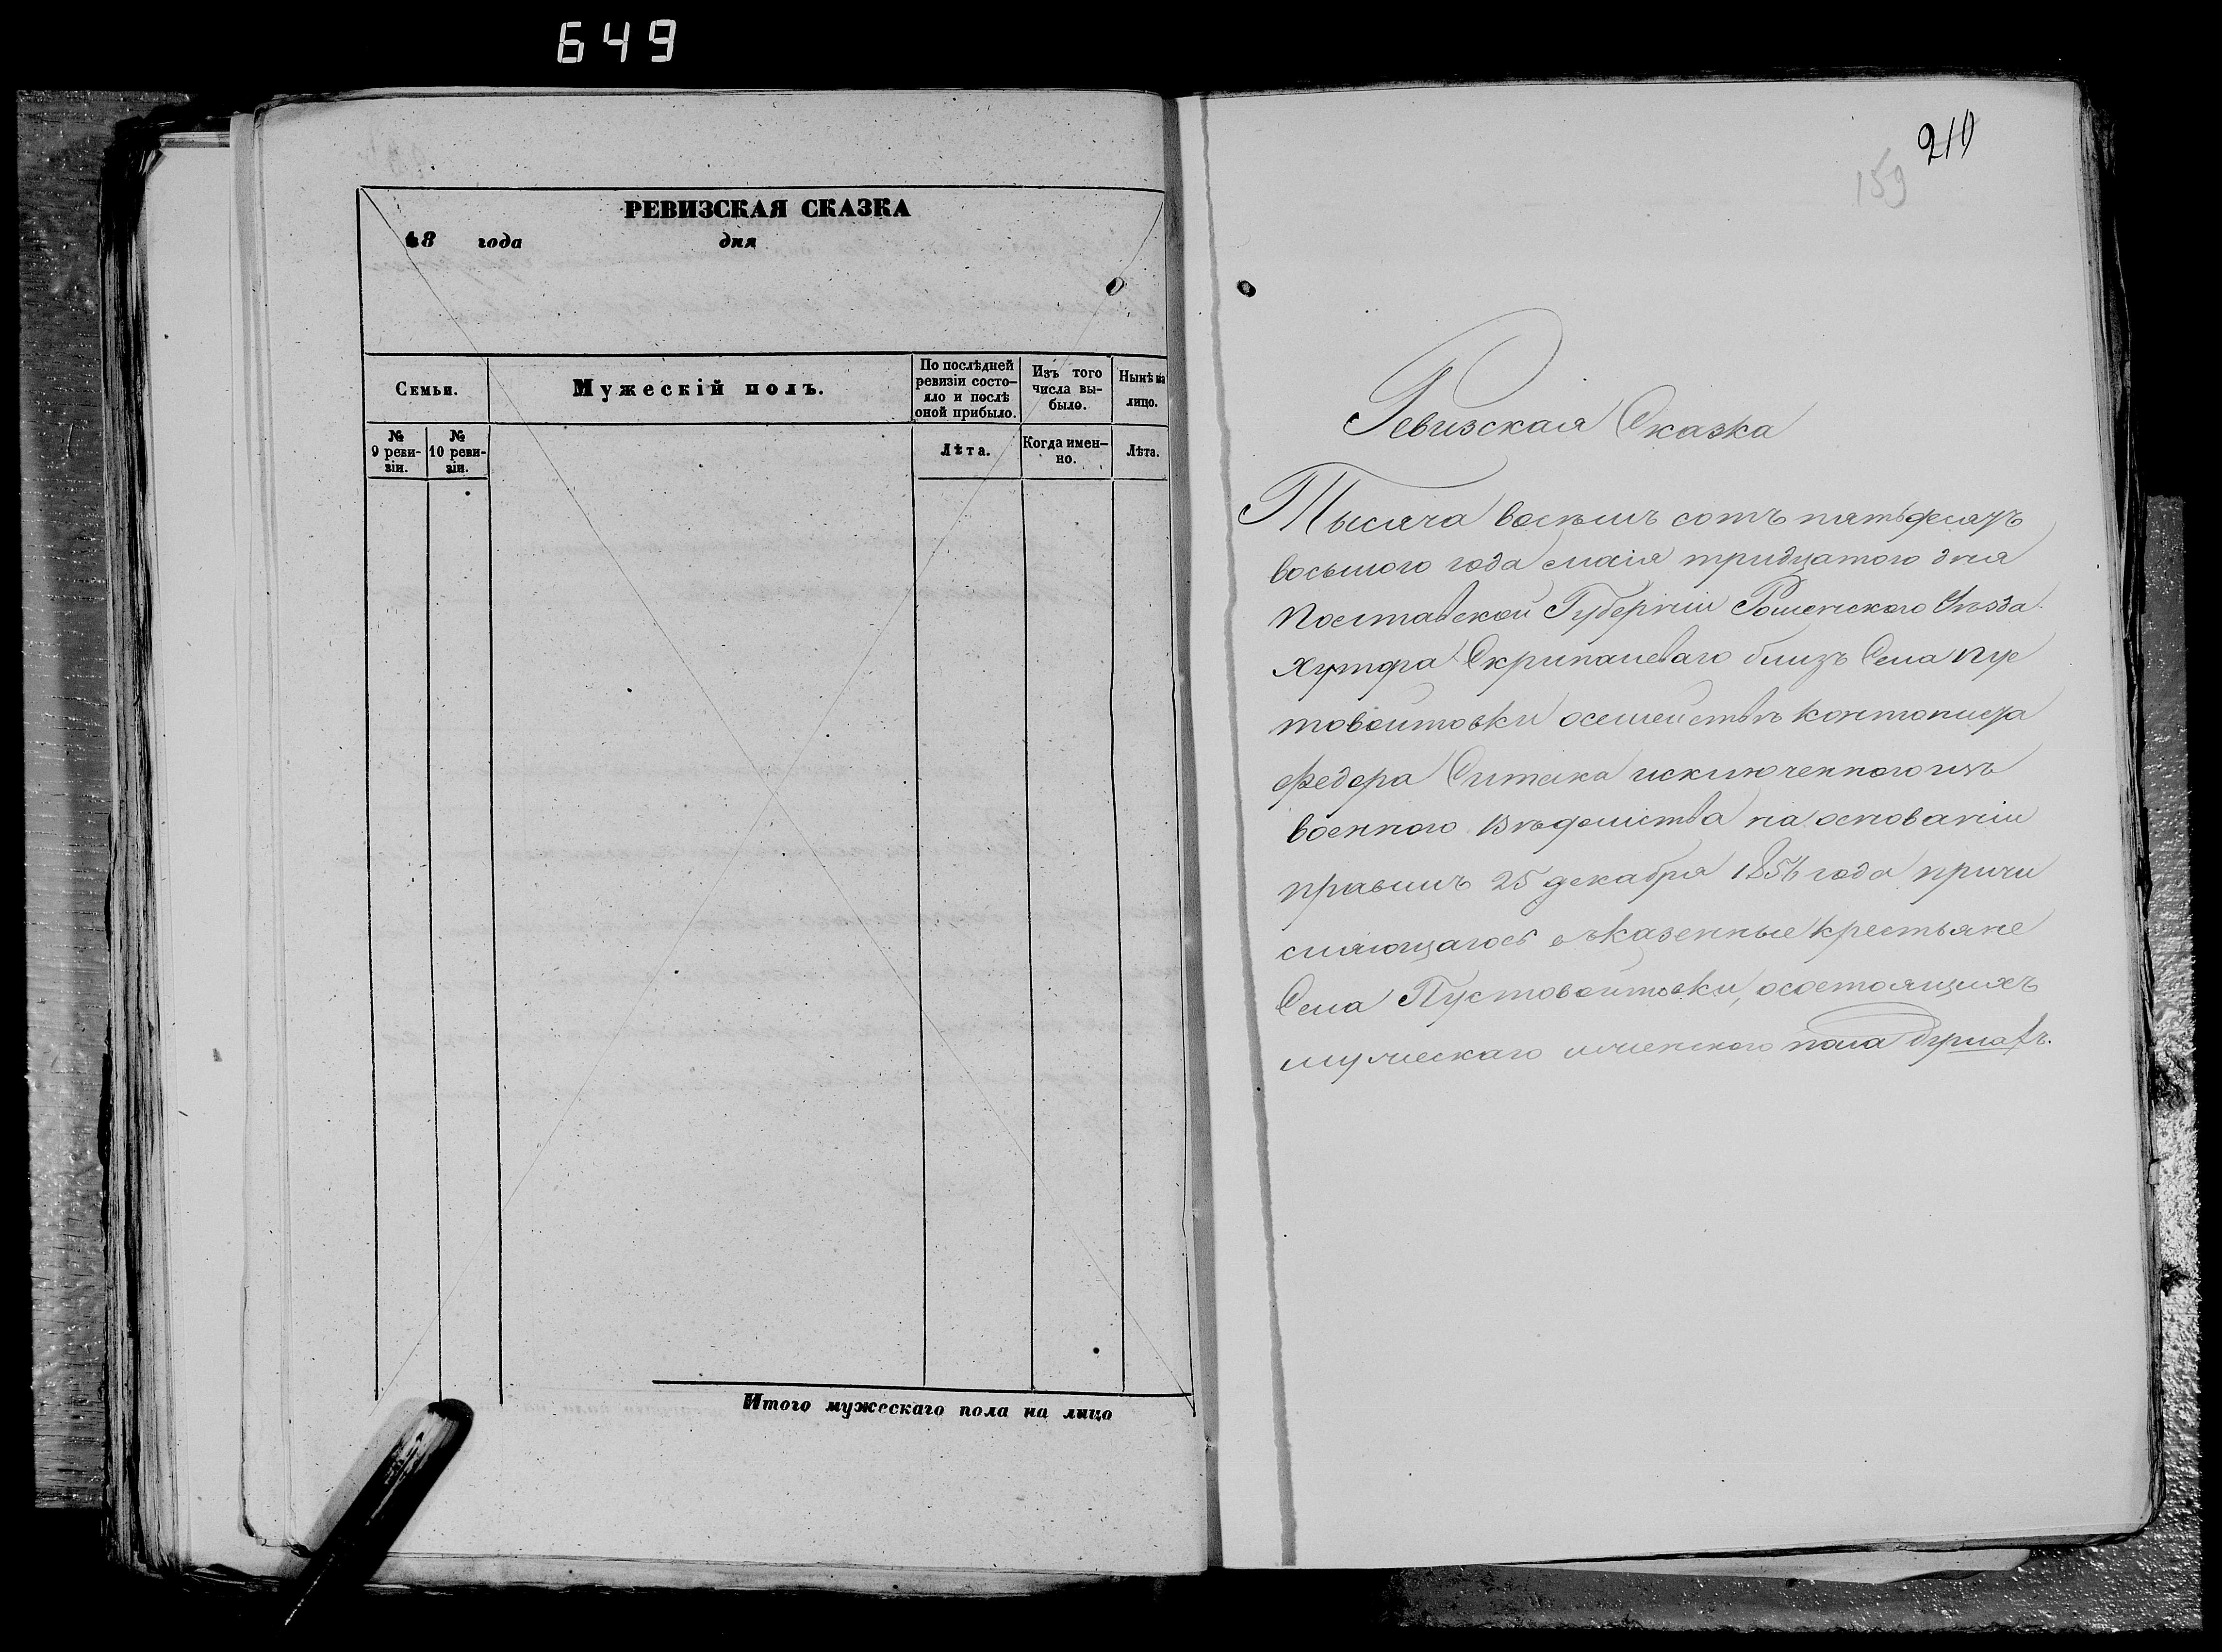 649
РЕВИЗСКАЯ СКАЗКА
18 года дня
Семьи.
Мужескій полъ.
По послѣдней ревизіи состо-
яло и послѣ оной прибыло.
Изъ того числа вы-
было.
Нынѣ на лицо.
№ 9 реви-
зіи.
№ 10 реви-
зіи.
Лѣта.
Когда имен-
но.
Лѣта.
Итого мужескаго пола на лицо
210
159
Ревизская Сказка
Тысяча восемь сотъ пятьдесятъ
восьмого года маія тридцатого дня
Полтавской Губерніи Роменского Уѣзда
Хутора Скрипалеваго близь Села Пус
товойтовки осемействѣ кантониста
Федора Ситака исключенного изъ
военного Вѣдомства на основаніи
правилъ 25 декабря 1856 года причи
сляющагося въказенные крестьяне
Села Пустовойтовки, осостоящихъ
мужескаго иженского пола душахъ.